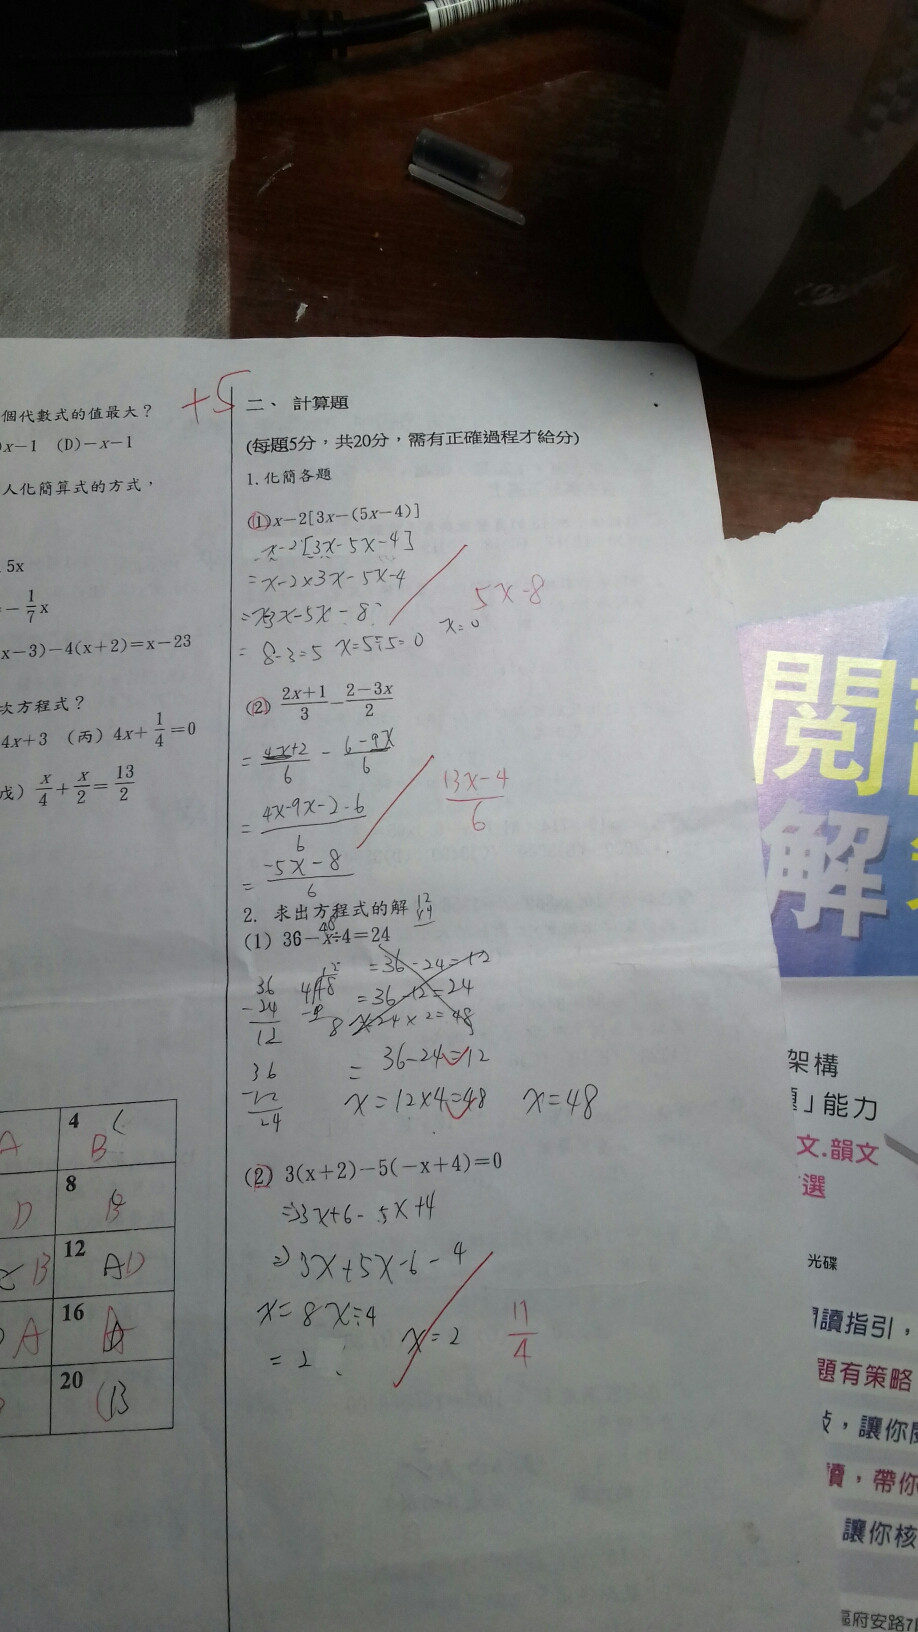 個代數式的值最大？
x－1 (D)－x－1
人化簡算式的方式，
5x
－1/7x
x－3)－4(x＋2)＝x－23
次方程式？
4x＋3 (丙) 4x＋1/4＝0
戊) x/4＋x/2＝13/2
A 4 B
D 8 B
B 12 AD
A 16
20 B
+5
二、 計算題
(每題5分，共20分，需有正確過程才給分)
1.化簡各題
(1)x－2[3x－(5x－4)]
x-2[3x-5x-4]
=x-2×3x-5x-4
5x-8
8-3=5 x=5÷5=0 x=0
(2) 2x＋1/3－2－3x/2
= 4x+2/6 - 6-9x/6
13x-4/6
= 4x-9x-2-6/6
= -5x-8/6
2. 求出方程式的解
(1) 36－x÷4＝24
48
=36-24=12
=36-12=24
x24×2=48
36
-24
12
= 36-24=12
36
x=12×4=48 x=48
(2) 3(x＋2)－5(－x＋4)＝0
=>3x+6-5x+4
=>3x+5x-6-4
x=8x÷4
x=2 11/4
=2
閱
解
架構
」能力
文.韻文
選
光碟
讀指引，
題有策略
，讓你
，帶你
讓你核
府安路7